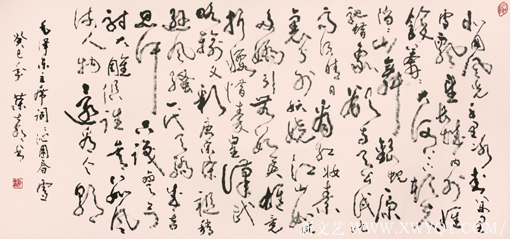 北国风光千里冰封万里
雪飘望长城内外惟
馀莽莽大河上下顿失
滔滔山舞银蛇原
驰蜡象欲与天公试比
高须晴日看红妆素
裹分外妖娆江山如此
多娇引无数英雄竞
折腰惜秦皇汉武
略输文彩唐宗宋祖稍
逊风骚一代天骄成吉
思汗只识弯弓
射大雕俱往矣数风
流人物还看今朝
毛泽东主席词沁园春雪
癸巳